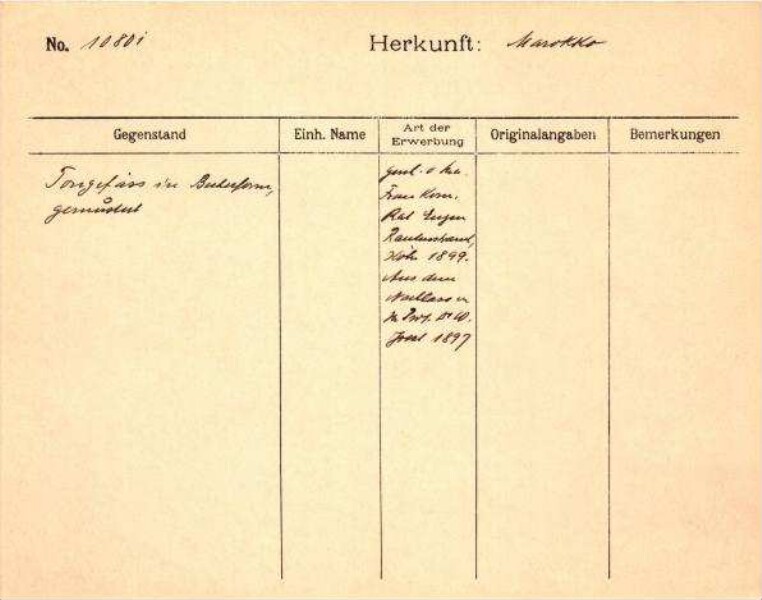 No. 1080i
Herkunft: Marokko
Gegenstand
Einh. Name
Art der
Erwerbung
Originalangaben
Bemerkungen
Tongefäss in Becherform,
gemustert
Frau Kom.
Rat Eugen
Rautenstrauch,
Köln 1899.
Aus dem
Nachlass v
Prof. Dr W.
Joest 1897